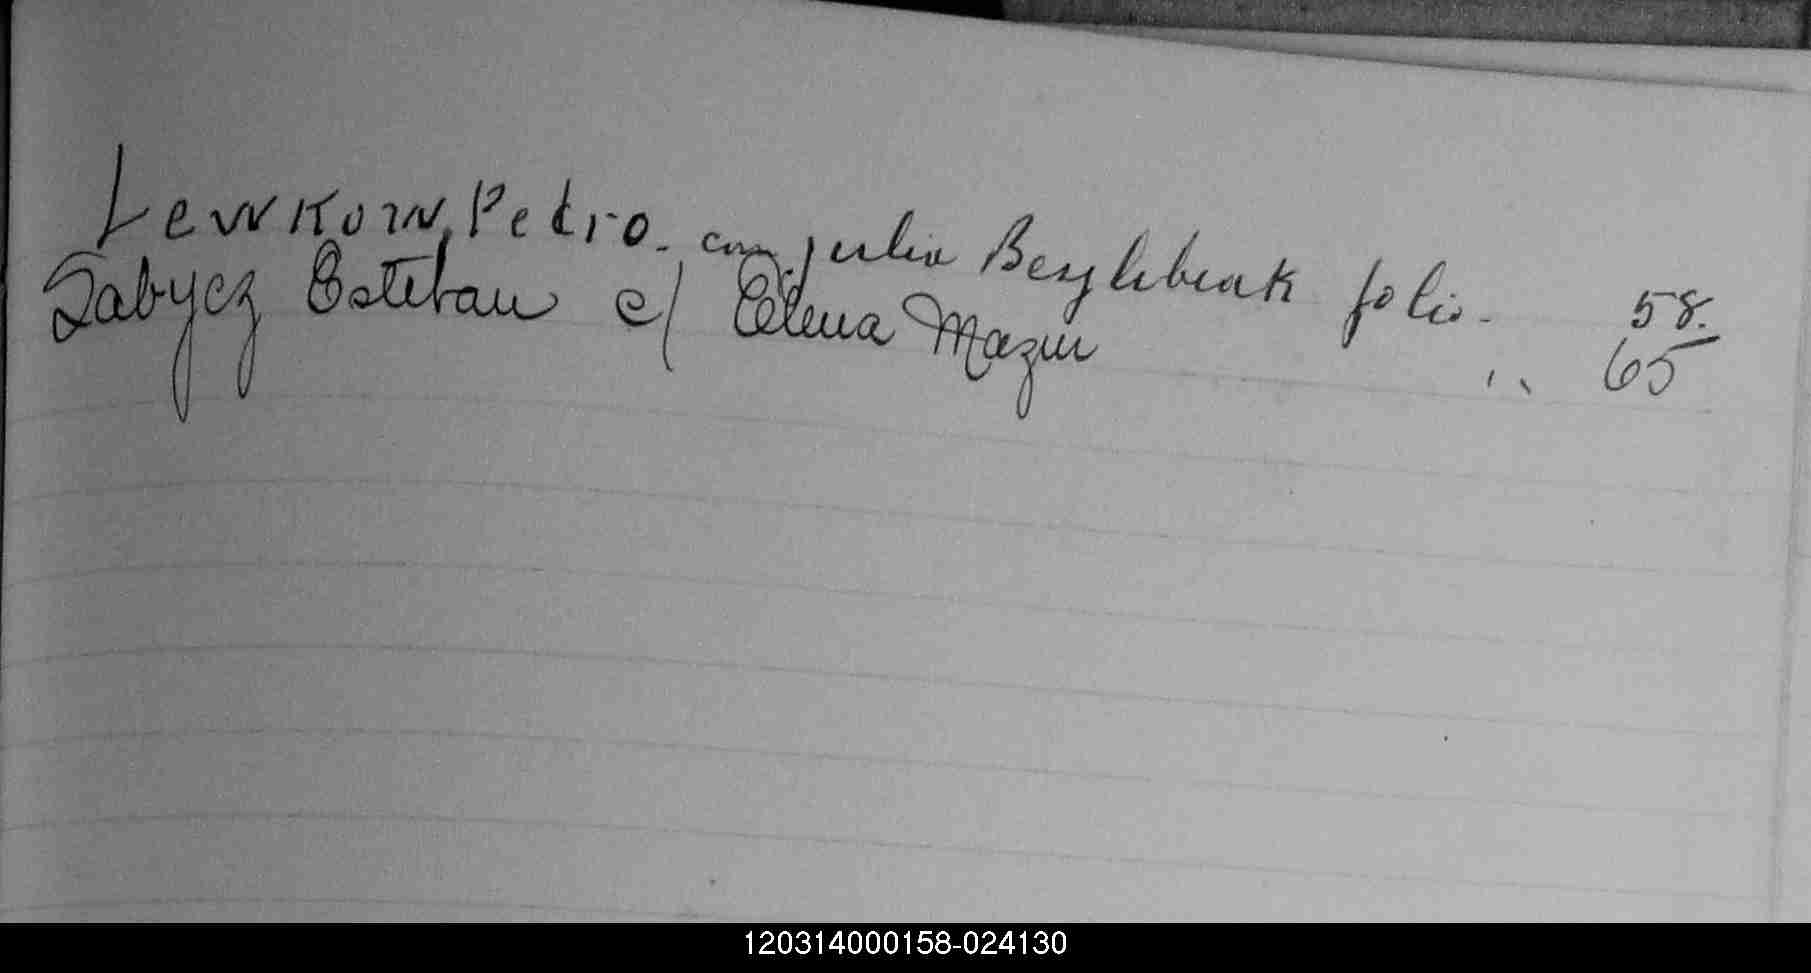 Lewkow, Pedro. con Julia Bezglebiak folio. 58.
Labycz Esteban c/ Elena Mazur " 65
120314000158-024130